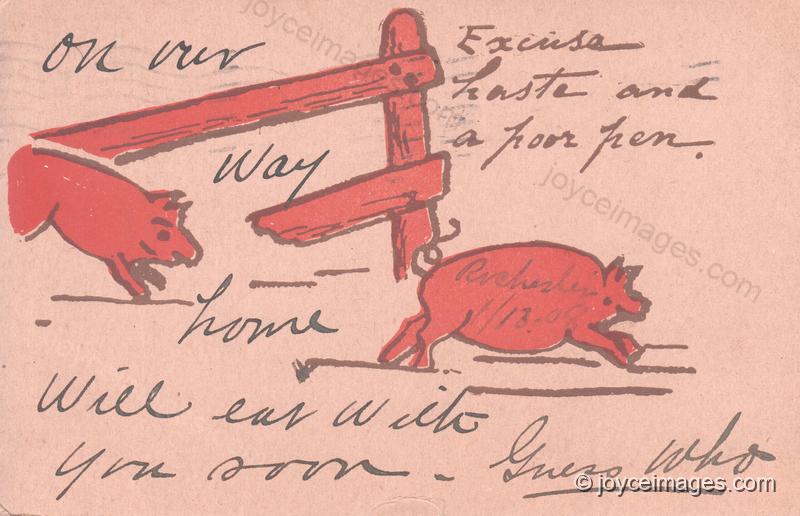 On our
Excuse
haste and
a poor pen.
way
Rochester
1/13-09
home
Will eat with
you soon - Guess Who
joyceimages.com
joyceimages.com
© joyceimages.com